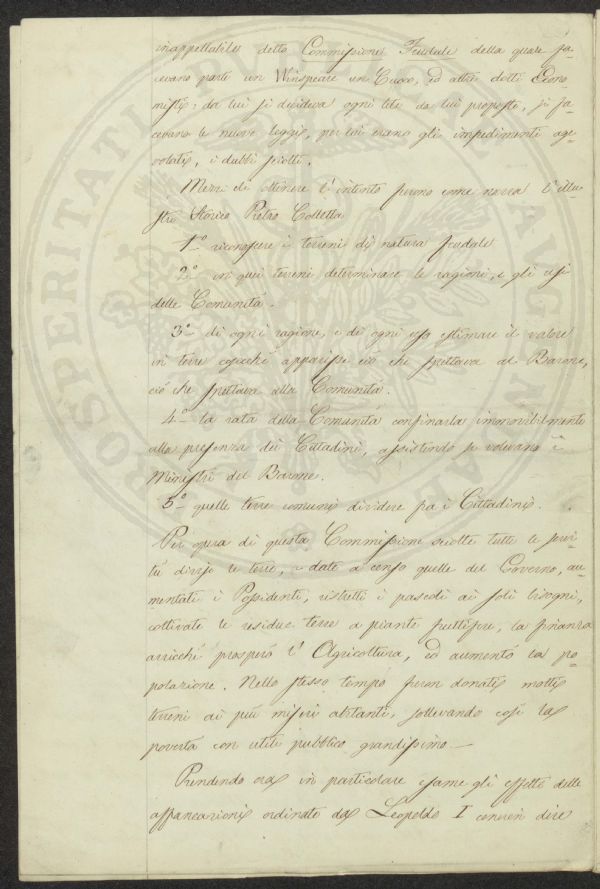 inappellabile detta Commissione Feudale della quale fa-
cevano parte un Winspeare un Cuoco, ed altri dotti Econo-
misti: da lui si decideva ogni lite da lui proposte, si fa-
cevano le nuove leggi, per cui erano gli impedimenti age-
volati, i dubbi sciolti.
Mezzi di ottenere l'intento furono come narra l'illu-
stre Storico Pietro Colletta
1.° riconoscere i terreni di natura feudale
2.° in quei terreni determinare le ragioni, e gli usi
delle Comunità.
3.° di ogni ragione, e di ogni uso estimare il valore
in terre cosicchè apparisse ciò che spettava al Barone,
ciò che spettava alla Comunità.
4.° la rata della Comunità confinarla immobilmente
alla presenza dei Cittadini, assistendo se volevano i
Ministri del Barone.
5.° quelle terre comuni dividere fra i Cittadini.
Per opera di questa Commissione sciolte tutte le servi-
tù divise le terre, e date a censo quelle del Governo, au-
mentati i Possidenti, ristretti i pascoli ai soli bisogni,
coltivate le residue terre a piante fruttifere, la finanza
arricchì prosperò l'Agricoltura, ed aumentò la po-
polazione. Nello stesso tempo furon donati molti
terreni ai più miseri abitanti, sollevando così la
povertà con utile pubblico grandissimo —
Prendendo ora in particolare esame gli effetti delle
affrancazioni ordinate da Leopoldo I converrà dire
PROSPERITATI PUBLICAE AUG